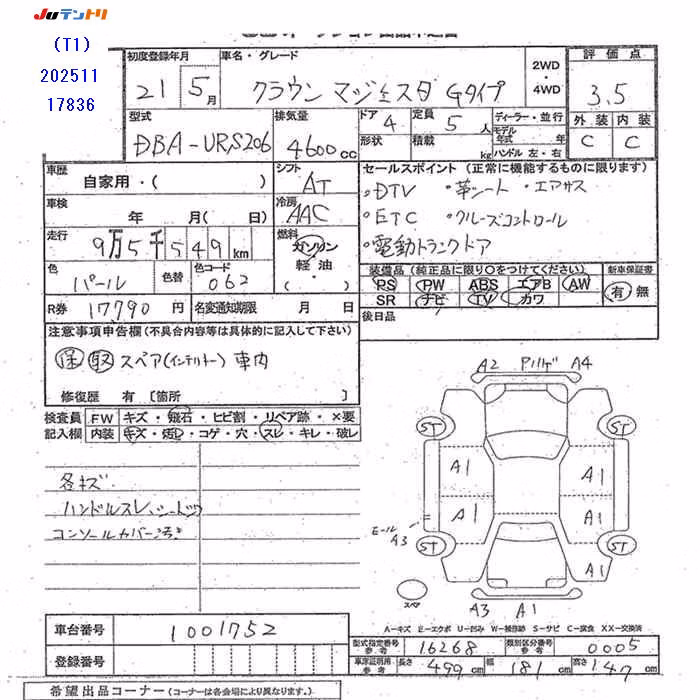 JUテントリ
(T1)
202511
17836
初度登録年月 車名・グレード 2WD・4WD 評価点
21 5月 クラウン マジェスタ Gタイプ 3.5
型式 排気量 ドア 4 定員 5人 ディーラー・並行 外装 内装
DBA-URS206 4600cc 形状 積載 kg モデル年式 年 ハンドル 左・右 C C
車歴 シフト セールスポイント(正常に機能するものに限ります)
自家用・( ) AT ・DTV ・革シート ・エアサス
車検 冷房
年 月( 日) AAC ・ETC ・クルーズコントロール
走行 燃料
9万5千549km ガソリン・軽油・( ) ・電動トランクドア
色 パール 色替 色コード 062 装備品(純正品に限り○をつけてください) 新車保証書
PS PW ABS エアB AW 有 無
SR ナビ TV カワ
R券 17790円 名変通知期限 月 日 後日品
注意事項申告欄(不具合内容等は具体的に記入して下さい)
保 取 スペア(インテリトー)車内
修復歴 有〔箇所 〕
検査員 FW キズ・飛石・ヒビ割・リペア跡・×要
記入欄 内装 キズ・汚レ・コゲ・穴・スレ・キレ・破レ
A2 Pハゲ A4
ST ST
A1 A1
A1 A1
モール A3
ST ST
A1
スペア
A3 A1
各キズ
ハンドルスレ、シート
コンソールカバー浮き
A-キズ E-エクボ U-凹み W-補修跡 S-サビ C-腐食 XX-交換済
車台番号 1001752 型式指定番号参考 16268 類別区分番号参考 0005
登録番号 車庫証明用参考 長さ 499cm 幅 181cm 高さ 147cm
希望出品コーナー(コーナーは各会場により異なります。)